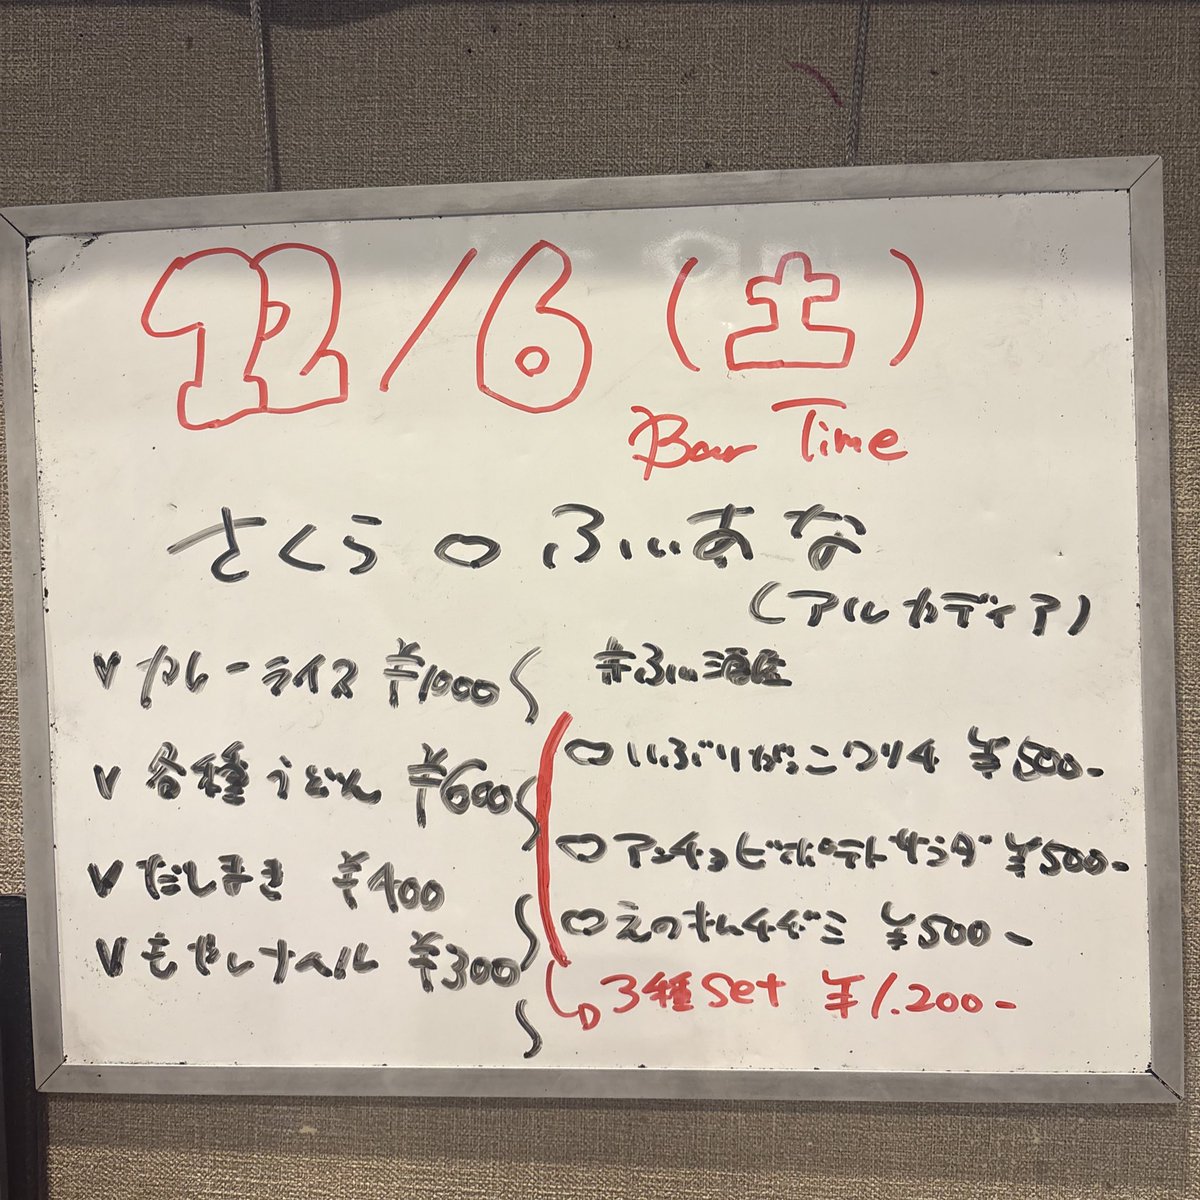 12/6(土)
Bar Time
さくら○ふぃあな
(アルカディア)
v カレーライス ¥1000
v 各種うどん ¥600
v だしまき ¥400
v もやしナムル ¥300
ふぃ酒屋
○いぶりがっこクリチ ¥500-
○アンチョビポテトサラダ ¥500-
○えのきんチヂミ ¥500-
3種set ¥1.200-